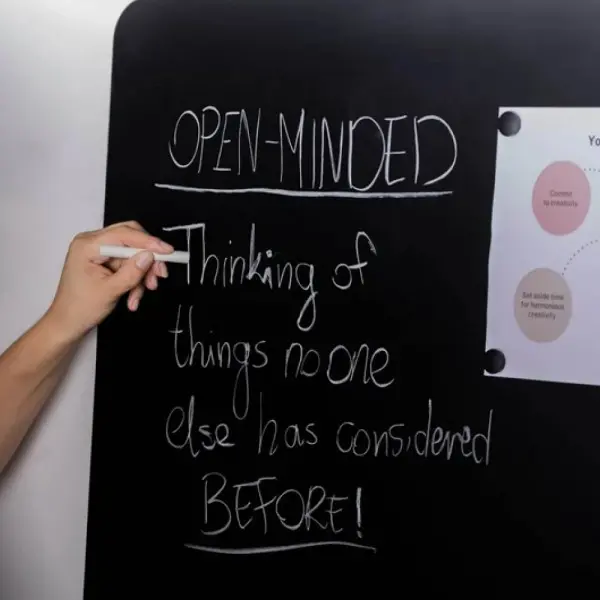 OPEN-MINDED
Thinking of
things no one
else has considered
BEFORE!
Yo
Commit
to creativity
Set aside time
for harmonious
creativity